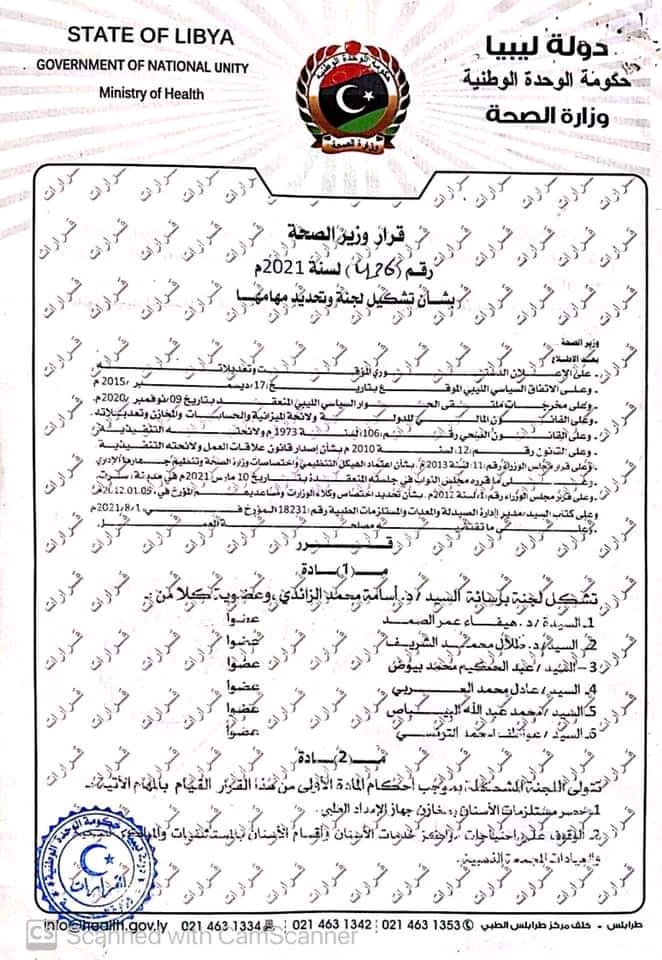 STATE OF LIBYA
GOVERNMENT OF NATIONAL UNITY
Ministry of Health
دولة ليبيا
حكومة الوحدة الوطنية
وزارة الصحة
حكومة الوحدة الوطنية
وزارة الصحة
قرار وزير الصحة
رقم (426) لسنة 2021م
بشأن تشكيل لجنة وتحديد مهامها
وزير الصحة
بعد الاطلاع
ـ على الإعلان الدستوري المؤقت وتعديلاته
ـ وعلى الاتفاق السياسي الليبي الموقع بتاريخ: 17/ديسمبر/2015م
ـ وعلى مخرجات ملتقى الحوار السياسي الليبي المنعقد بتاريخ 09/نوفمبر/2020م.
ـ وعلى القانون المالي للدولة ولائحة الميزانية والحسابات والمخازن وتعديلاته
ـ وعلى القانون الصحي رقم:106 لسنة 1973م ولائحته التنفيذية
ـ وعلى القانون رقم:12 لسنة 2010م بشأن إصدار قانون علاقات العمل ولائحته التنفيذية
ـ وعلى قرار مجلس الوزراء رقم:11 لسنة 2013م. بشأن اعتماد الهيكل التنظيمي واختصاصات وزارة الصحة وتنظيم جهازها الإداري
ـ وعلى ما قرره مجلس النواب في جلسته المنعقدة بتاريخ 10 مارس 2021م في مدينة سرت
ـ وعلى قرار مجلس الوزراء رقم:4 لسنة 2012م. بشأن تحديد اختصاص وكلاء الوزارات ومساعديهم المؤرخ في 2012.01.05م.
وعلى كتاب السيد/مدير إدارة الصيدلة والمعدات والمستلزمات الطبية رقم:18231 المؤرخ في 2021/8/1م
ـ وعلى ما تقتضيه مصلحة العمل.
قـــرر
مـــ(1)ـــادة
تشكل لجنة برئاسة السيد/د. أسامة محمد الزائدي، وعضوية كلا من:ـ
1ـ السيدة/د. هيفاء عمر الصمد عضوا
2ـ السيد/د. طلال محمد الشريف عضوا
3- السيد/عبد الحكيم محمد بيوض عضوا
4ـ السيد/عادل محمد العربي عضوا
5ـ السيد/محمد عبد الله البياص عضوا
6ـ السيد/ احمد التونسي عضوا
مـــ(2)ـــادة
تتولى اللجنة المشكلة بموجب أحكام المادة الأولى من هذا القرار القيام بالمهام الآتية:ـ
1ـ حصر مستلزمات الأسنان بمخازن جهاز الإمداد الطبي.
2ـ الوقوف على احتياجات خدمات الأسنان وأقسام الأسنان بالمستشفيات
والعيادات المجمعة
القرارات
info@health.gov.ly 021 463 1334 021 463 1342 021 463 1353 طرابلس - خلف مركز طرابلس الطبي
CS Scanned with CamScanner